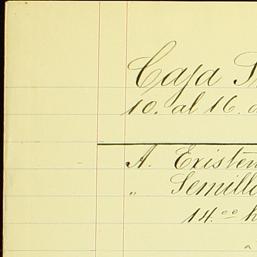 Caja
10. al 16.
A. Existen
" Semill
14.00